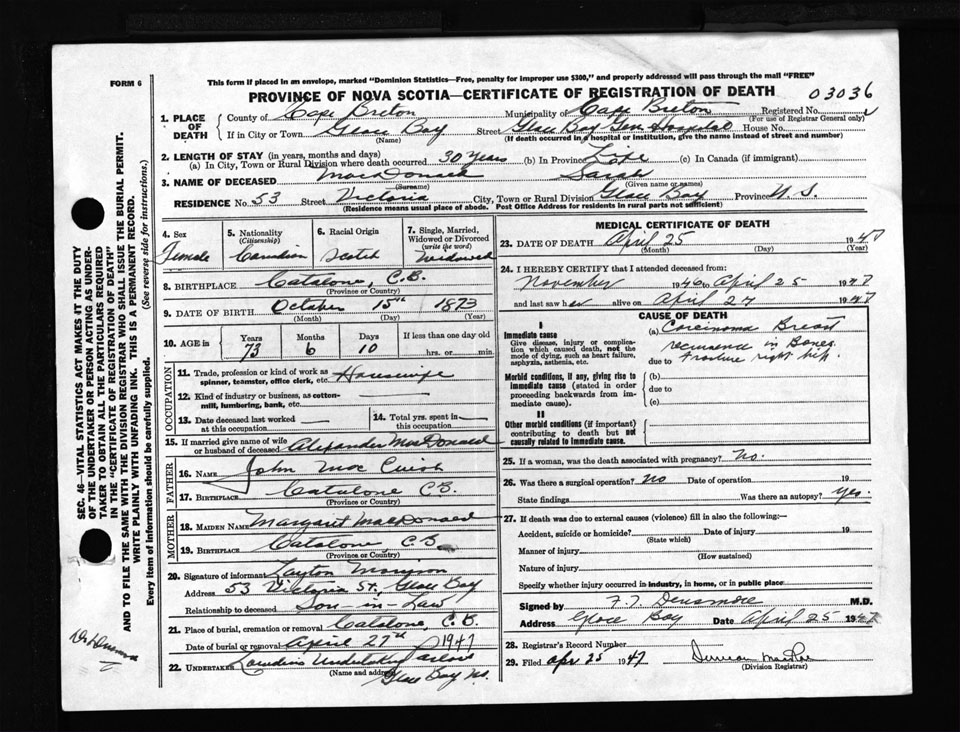 FORM 6
This form if placed in an envelope, marked "Dominion Statistics—Free, penalty for improper use $300," and properly addressed will pass through the mail "FREE"
PROVINCE OF NOVA SCOTIA—CERTIFICATE OF REGISTRATION OF DEATH
03036
1. PLACE OF DEATH
County of Cape Breton Municipality of Cape Breton Registered No.
(For use of Registrar General only)
If in City or Town Glace Bay Street Glace Bay Gen Hospital House No.
(Name) (If death occurred in hospital or institution, give the name instead of street and number)
2. LENGTH OF STAY (in years, months and days)
(a) In City, Town or Rural Division where death occurred 30 Years (b) In Province Life (c) In Canada (if immigrant)
3. NAME OF DECEASED MacDonald Sarah
(Surname) (Given name or names)
RESIDENCE No. 53 Street Victoria City, Town or Rural Division Glace Bay Province N.S.
(Residence means usual place of abode. Post Office Address for residents in rural parts not sufficient)
4. Sex
Female
5. Nationality
(Citizenship)
Canadian
6. Racial Origin
Scotch
7. Single, Married, Widowed or Divorced
(write the word)
Widowed
8. BIRTHPLACE Catalone, C.B.
(Province or Country)
9. DATE OF BIRTH October 15th 1873
(Month) (Day) (Year)
10. AGE in Years Months Days If less than one day old
73 6 10 hrs. or min.
OCCUPATION
11. Trade, profession or kind of work as spinner, teamster, office clerk, etc. Housewife
12. Kind of industry or business, as cotton-mill, lumbering, bank, etc.
13. Date deceased last worked at this occupation
14. Total yrs. spent in this occupation
15. If married give name of wife or husband of deceased Alexander MacDonald
FATHER
16. Name John Mac
17. Birthplace Catalone C.B.
(Province or Country)
MOTHER
18. Maiden Name Margaret MacDonald
19. Birthplace Catalone, C.B.
(Province or Country)
20. Signature of informant Layton
Address 53 Victoria St., Glace Bay
Relationship to deceased Son-in-Law
21. Place of burial, cremation or removal Catalone C.B.
Date of burial or removal April 27th 1947
22. Undertaker Undertaking Parlors
(Name and address) Glace Bay N.S.
MEDICAL CERTIFICATE OF DEATH
23. DATE OF DEATH April 25 1947
(Month) (Day) (Year)
24. I HEREBY CERTIFY that I attended deceased from:
November 1946 to April 25 1947
and last saw her alive on April 24 1947
CAUSE OF DEATH
I
Immediate cause
Give disease, injury or complication which caused death, not the mode of dying, such as heart failure, asphyxia, asthenia, etc.
(a) Carcinoma Breast
in Bones
due to Fracture right hip.
Morbid conditions, if any, giving rise to immediate cause (stated in order proceeding backwards from immediate cause).
(b)
due to
(c)
II
Other morbid conditions (if important) contributing to death but not causally related to immediate cause.
25. If a woman, was the death associated with pregnancy? No.
26. Was there a surgical operation? No Date of operation 19
State findings Was there an autopsy? Yes.
27. If death was due to external causes (violence) fill in also the following:—
Accident, suicide or homicide? Date of injury 19
(State which)
Manner of injury
(How sustained)
Nature of injury
Specify whether injury occurred in industry, in home, or in public place
Signed by F. J. Densmore M.D.
Address Glace Bay Date April 25 1947
28. Registrar's Record Number
29. Filed Apr 25 1947 Duncan MacRae
(Division Registrar)
SEC. 46—VITAL STATISTICS ACT MAKES IT THE DUTY
OF THE UNDERTAKER OR PERSON ACTING AS UNDER-
TAKER TO OBTAIN ALL THE PARTICULARS REQUIRED
IN THE "CERTIFICATE OF REGISTRATION OF DEATH"
AND TO FILE THE SAME WITH THE DIVISION REGISTRAR WHO SHALL ISSUE THE BURIAL PERMIT.
WRITE PLAINLY WITH UNFADING INK. THIS IS A PERMANENT RECORD.
Every item of information should be carefully supplied. (See reverse side for instructions.)
Dr Densmore